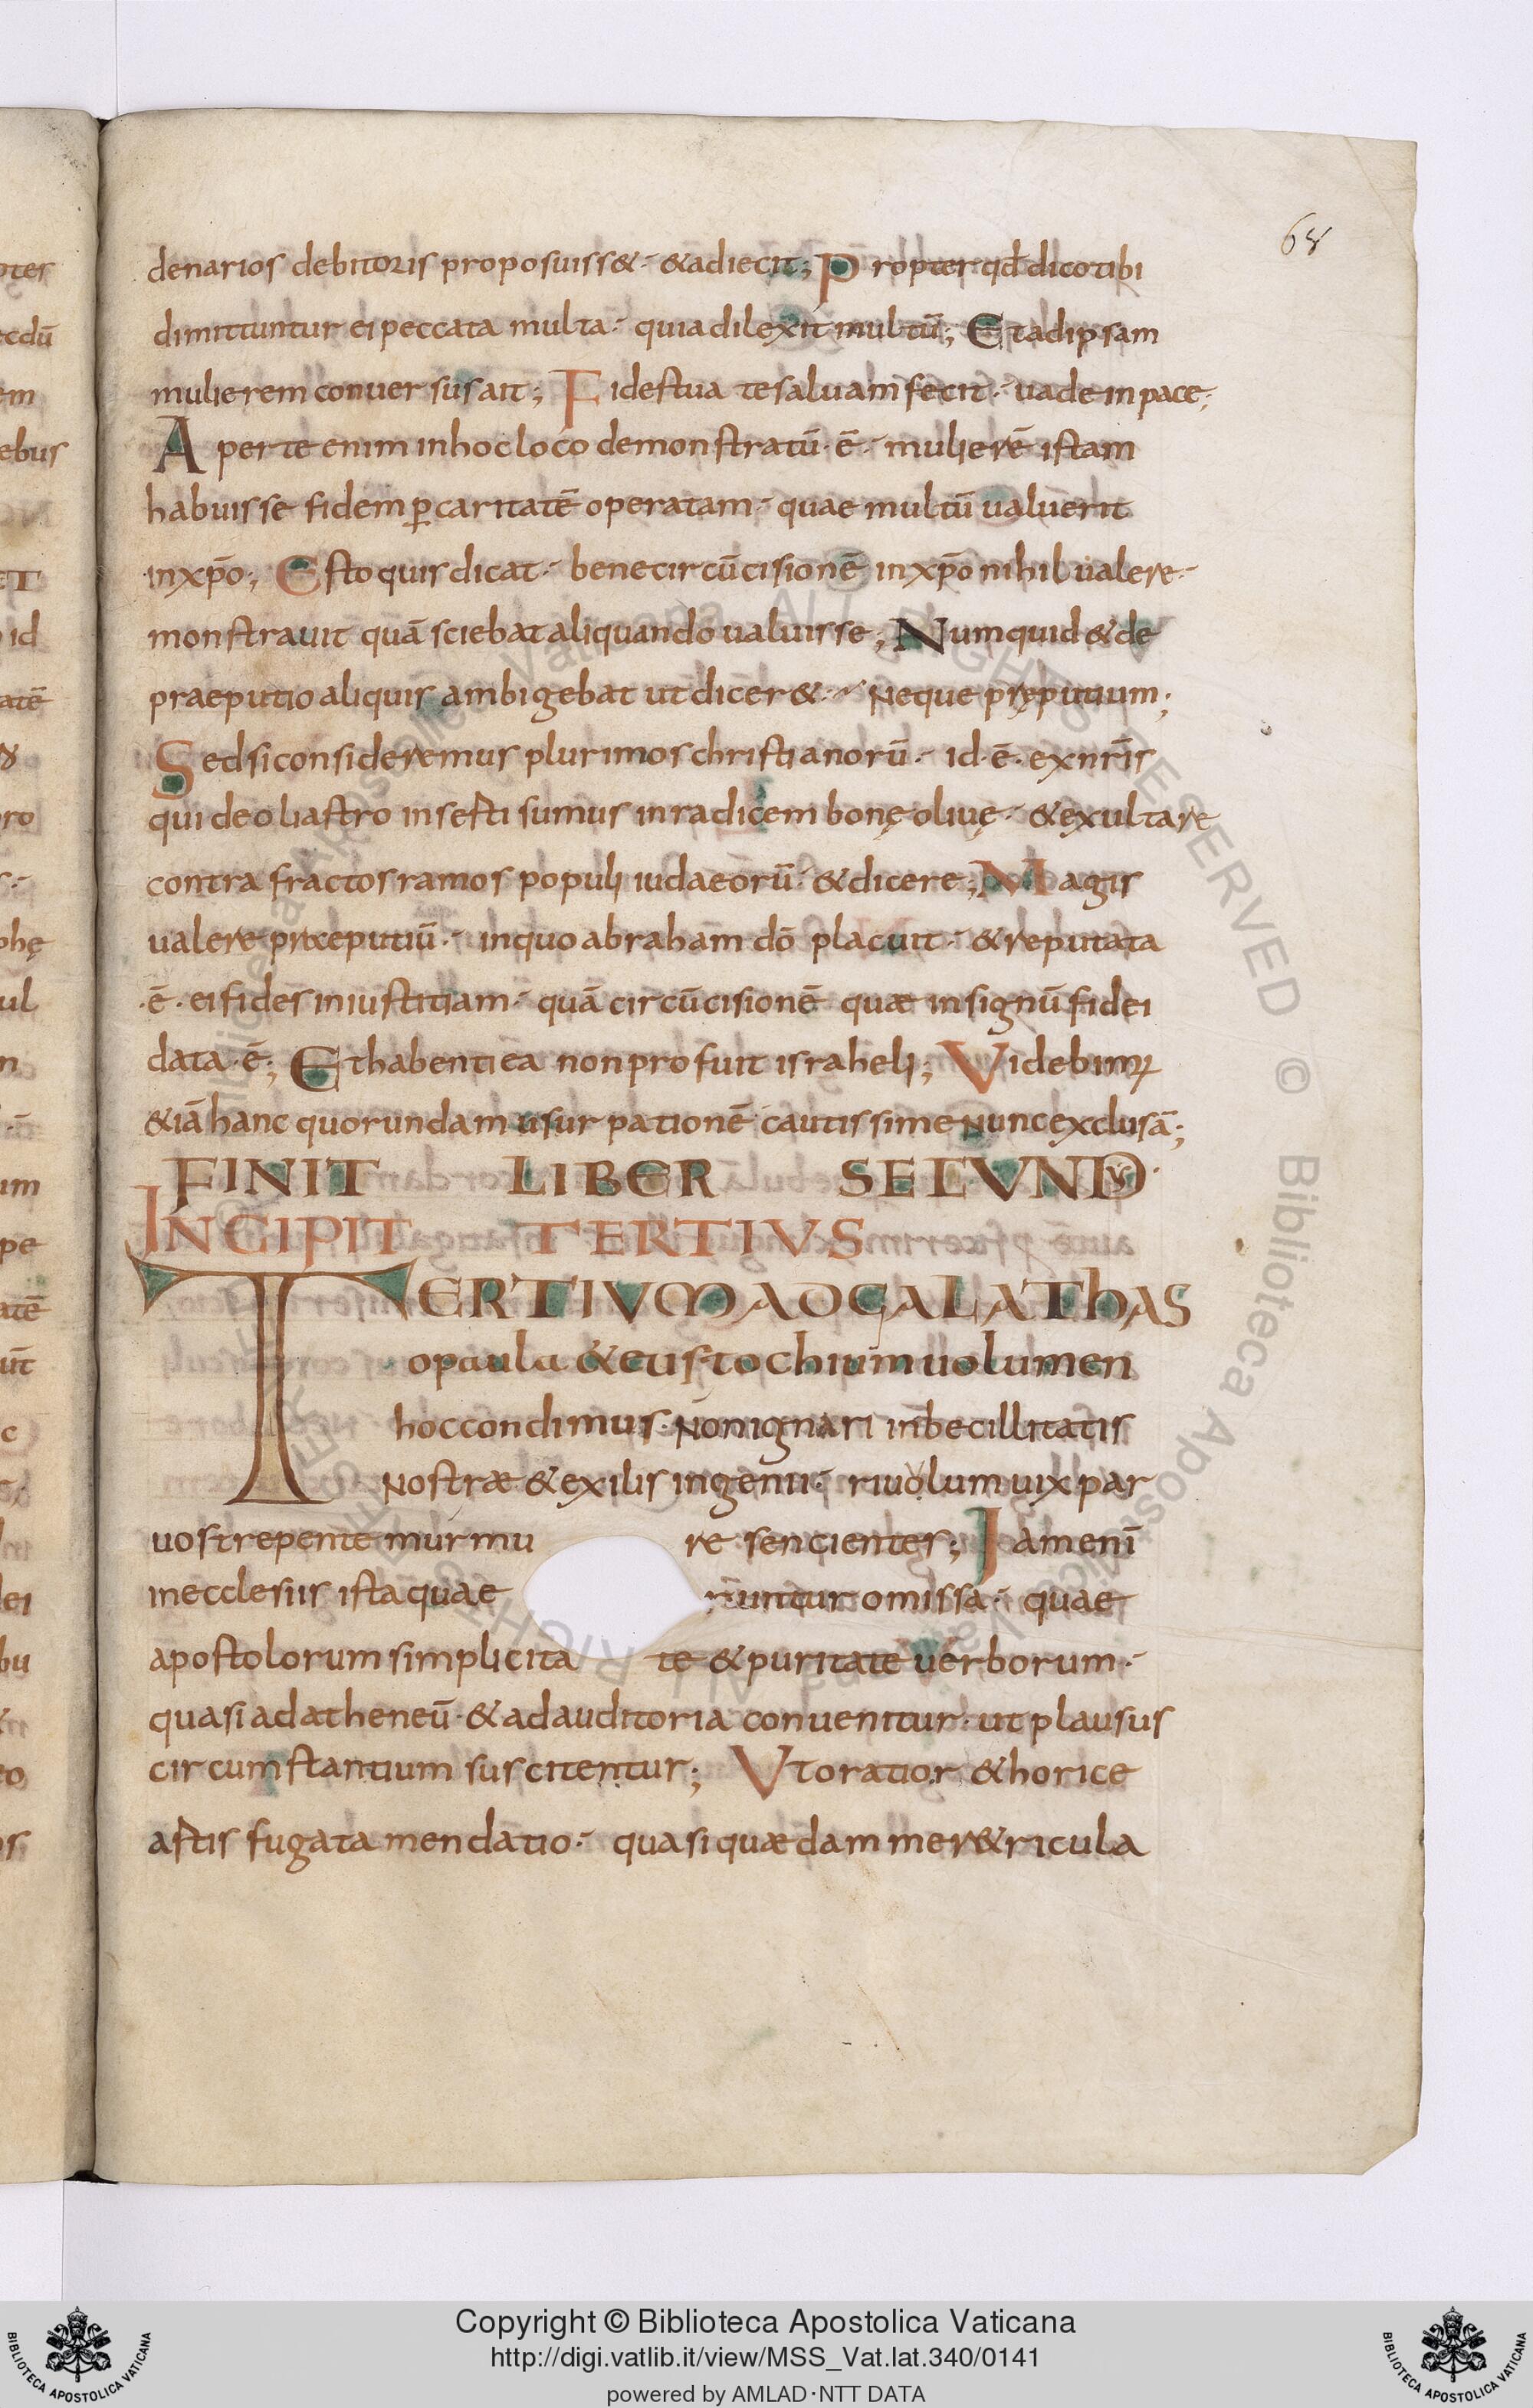 68
denarios debitoris proposuiss& & adiecit; Propter qd̄ dico tibi
dimittuntur ei peccata multa quia dilexit multū; Et ad ipsam
mulierem conuersus ait; Fides tua te saluam fecit uade in pace;
Aperte enim in hoc loco demonstratū · ē · mulierē istam
habuisse fidem ꝑ caritatē operatam quae multū ualuerit
in xp̄o; Esto quis dicat bene circūcisionē in xp̄o nihil ualere
monstrauit quā sciebat aliquando ualuisse; Numquid & de
praeputio aliquis ambigebat ut dicer& Neque pręputium;
Sed si consideremus plurimos christianorū id · ē · ex nr̄is
qui de oliastro inserti sumus in radicem bonę oliuę & exultare
contra fractos ramos populi iudaeorū & dicere; Magis
ualere praeputiū in quo abraham dō placuit & reputata
· ē · ei fides in iustitiam quā circūcisionē quae in signū fidei
data · ē; Et habenti ea non profuit israheli; Videbimꝰ
&iā hanc quorundam usurpationē cautissime nunc exclusā;
FINIT LIBER SECUND
INCIPIT TERTIVS
TERTIVM AD GALATHAS
o paula & eustochium uolumen
hoc condimus · Non ignari inbecillitatis
Nostrae & exilis ingenii riuolum uix par
uo strepente murmu re sencientes; Iam enī
in ecclesiis ista quae runtur omissa quae
apostolorum simplicita te & puritate uerborum
quasi ad atheneū · & ad auditoria conuenitur · ut plausus
circumstantium suscitentur; Vt oratior & horice
astis fugata mendatio quasi quaedam mer&ricula
oter
ecdū
em
ebus
ET
id
atē
ro
phę
ul
n
um
pe
atē
ūt
c
lei
bu
eo
os
© Biblioteca Apostolica Vaticana ALL RIGHTS RESERVED © Biblioteca Apostolica Vaticana ALL RIGHTS RESERVED
Copyright © Biblioteca Apostolica Vaticana
http://digi.vatlib.it/view/MSS_Vat.lat.340/0141
powered by AMLAD·NTT DATA
BIBLIOTECA APOSTOLICA VATICANA
BIBLIOTECA APOSTOLICA VATICANA